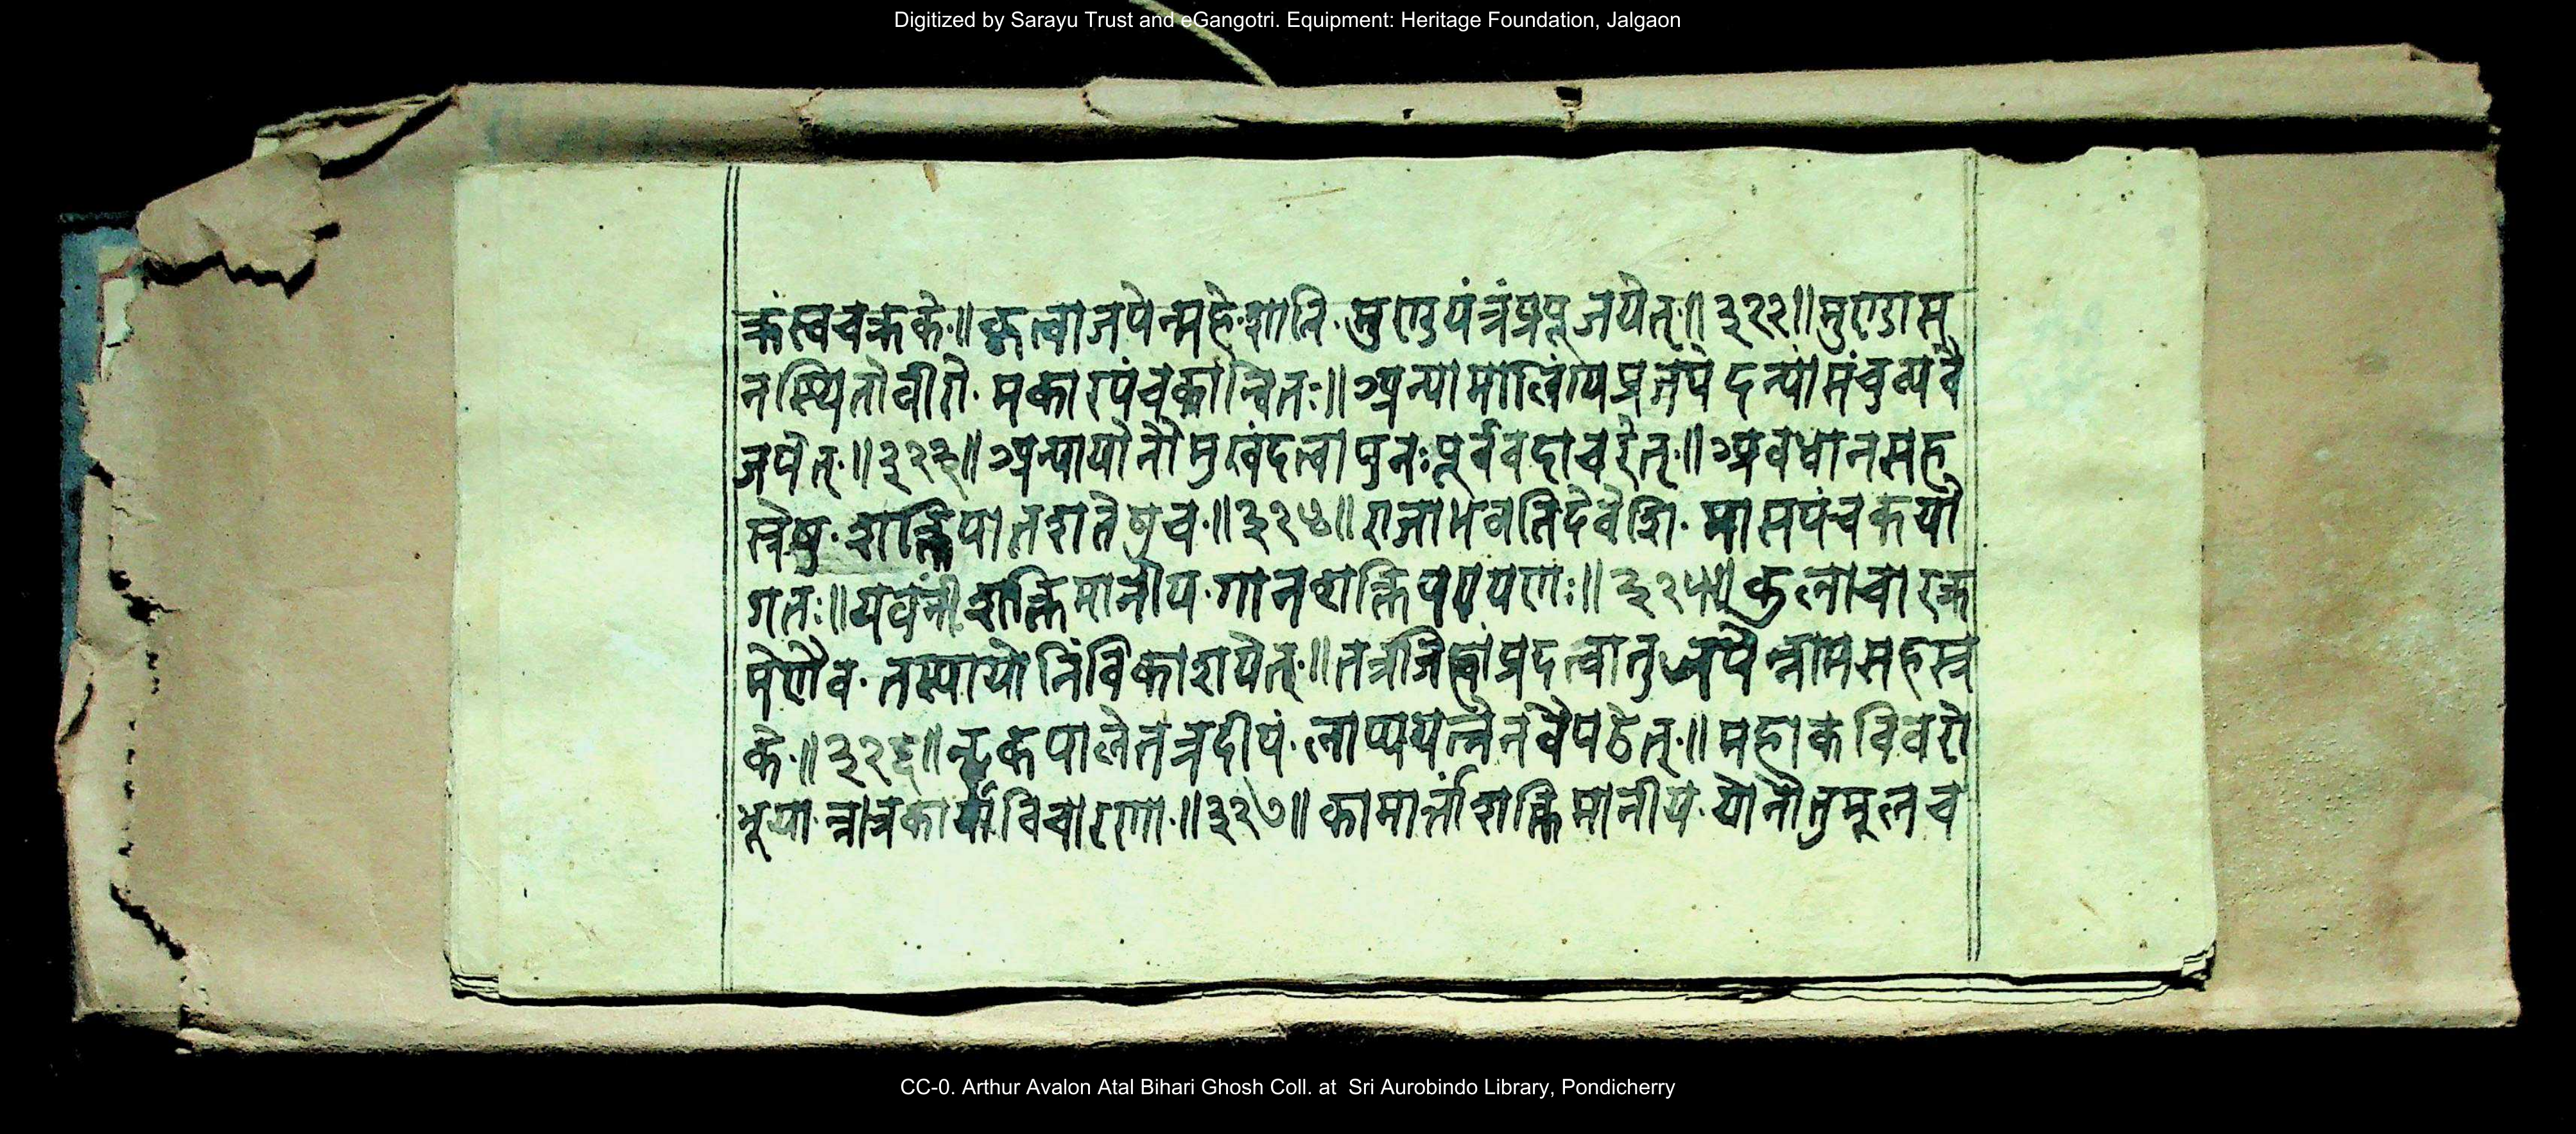 Digitized by Sarayu Trust and eGangotri. Equipment: Heritage Foundation, Jalgaon
क्रंस्वचक्रके॥ कृत्वाजपेन्महेशानि मुण्डयंत्रंप्रपूजयेत्॥३२२॥मुण्डास
नस्थितोवीरो मकारपंचकान्वितः॥ अन्यामालिंग्यप्रजपेदन्यांसंचुव्यवै
जपेत्॥३२३॥ अन्यायोनौमुखंदत्वापुनःपूर्ववदाचरेत्॥ अवधानसह
स्त्रेषु शक्तिपातशतेषुच॥३२४॥राजाभवतिदेवेशि मासपंचकयो
गतः॥यवनीशक्तिमानीय गानशक्तिपरायणः॥३२५॥कुलाचारक्र
मेणैव तस्यायोनिंविकाशयेत्॥तत्रजिह्वांप्रदत्वातुजपेन्नामसहस्त्र
के॥३२६॥नृकपालेतत्रदीपं लाप्ययत्नेनवैपठेत्॥महाकविवरो
भूयान्नात्रकार्याविचारणा॥३२७॥ कामार्त्तांशक्तिमानीय योनौतुमूलच
CC-0. Arthur Avalon Atal Bihari Ghosh Coll. at Sri Aurobindo Library, Pondicherry